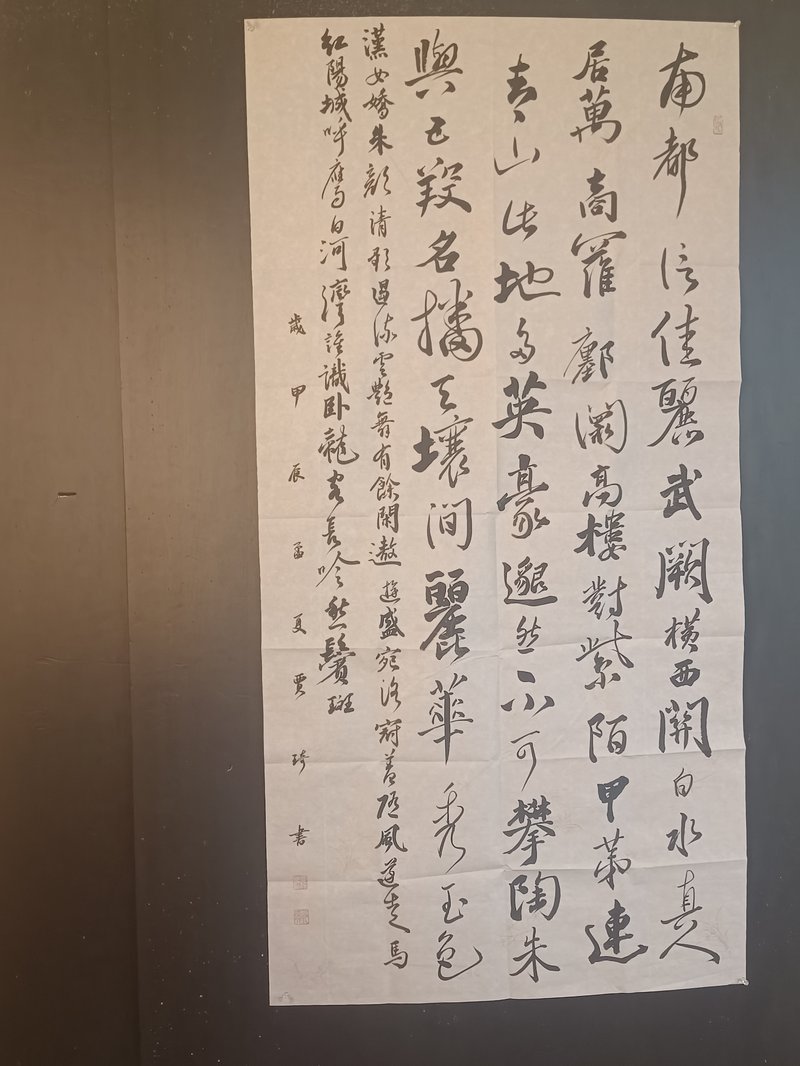 南都信佳麗武闕橫西關白水真人
居萬商羅鄽闤高樓對紫陌甲第連
青山此地多英豪邈然不可攀陶朱
與五羖名播天壤間麗華秀玉色
漢女嬌朱顏清歌遏流雲艷舞有餘閑遨遊盛宛洛冠蓋隨風還走馬
紅陽城呼鷹白河灣誰識卧龍客長吟愁鬢斑
歲甲辰孟夏賈琦書